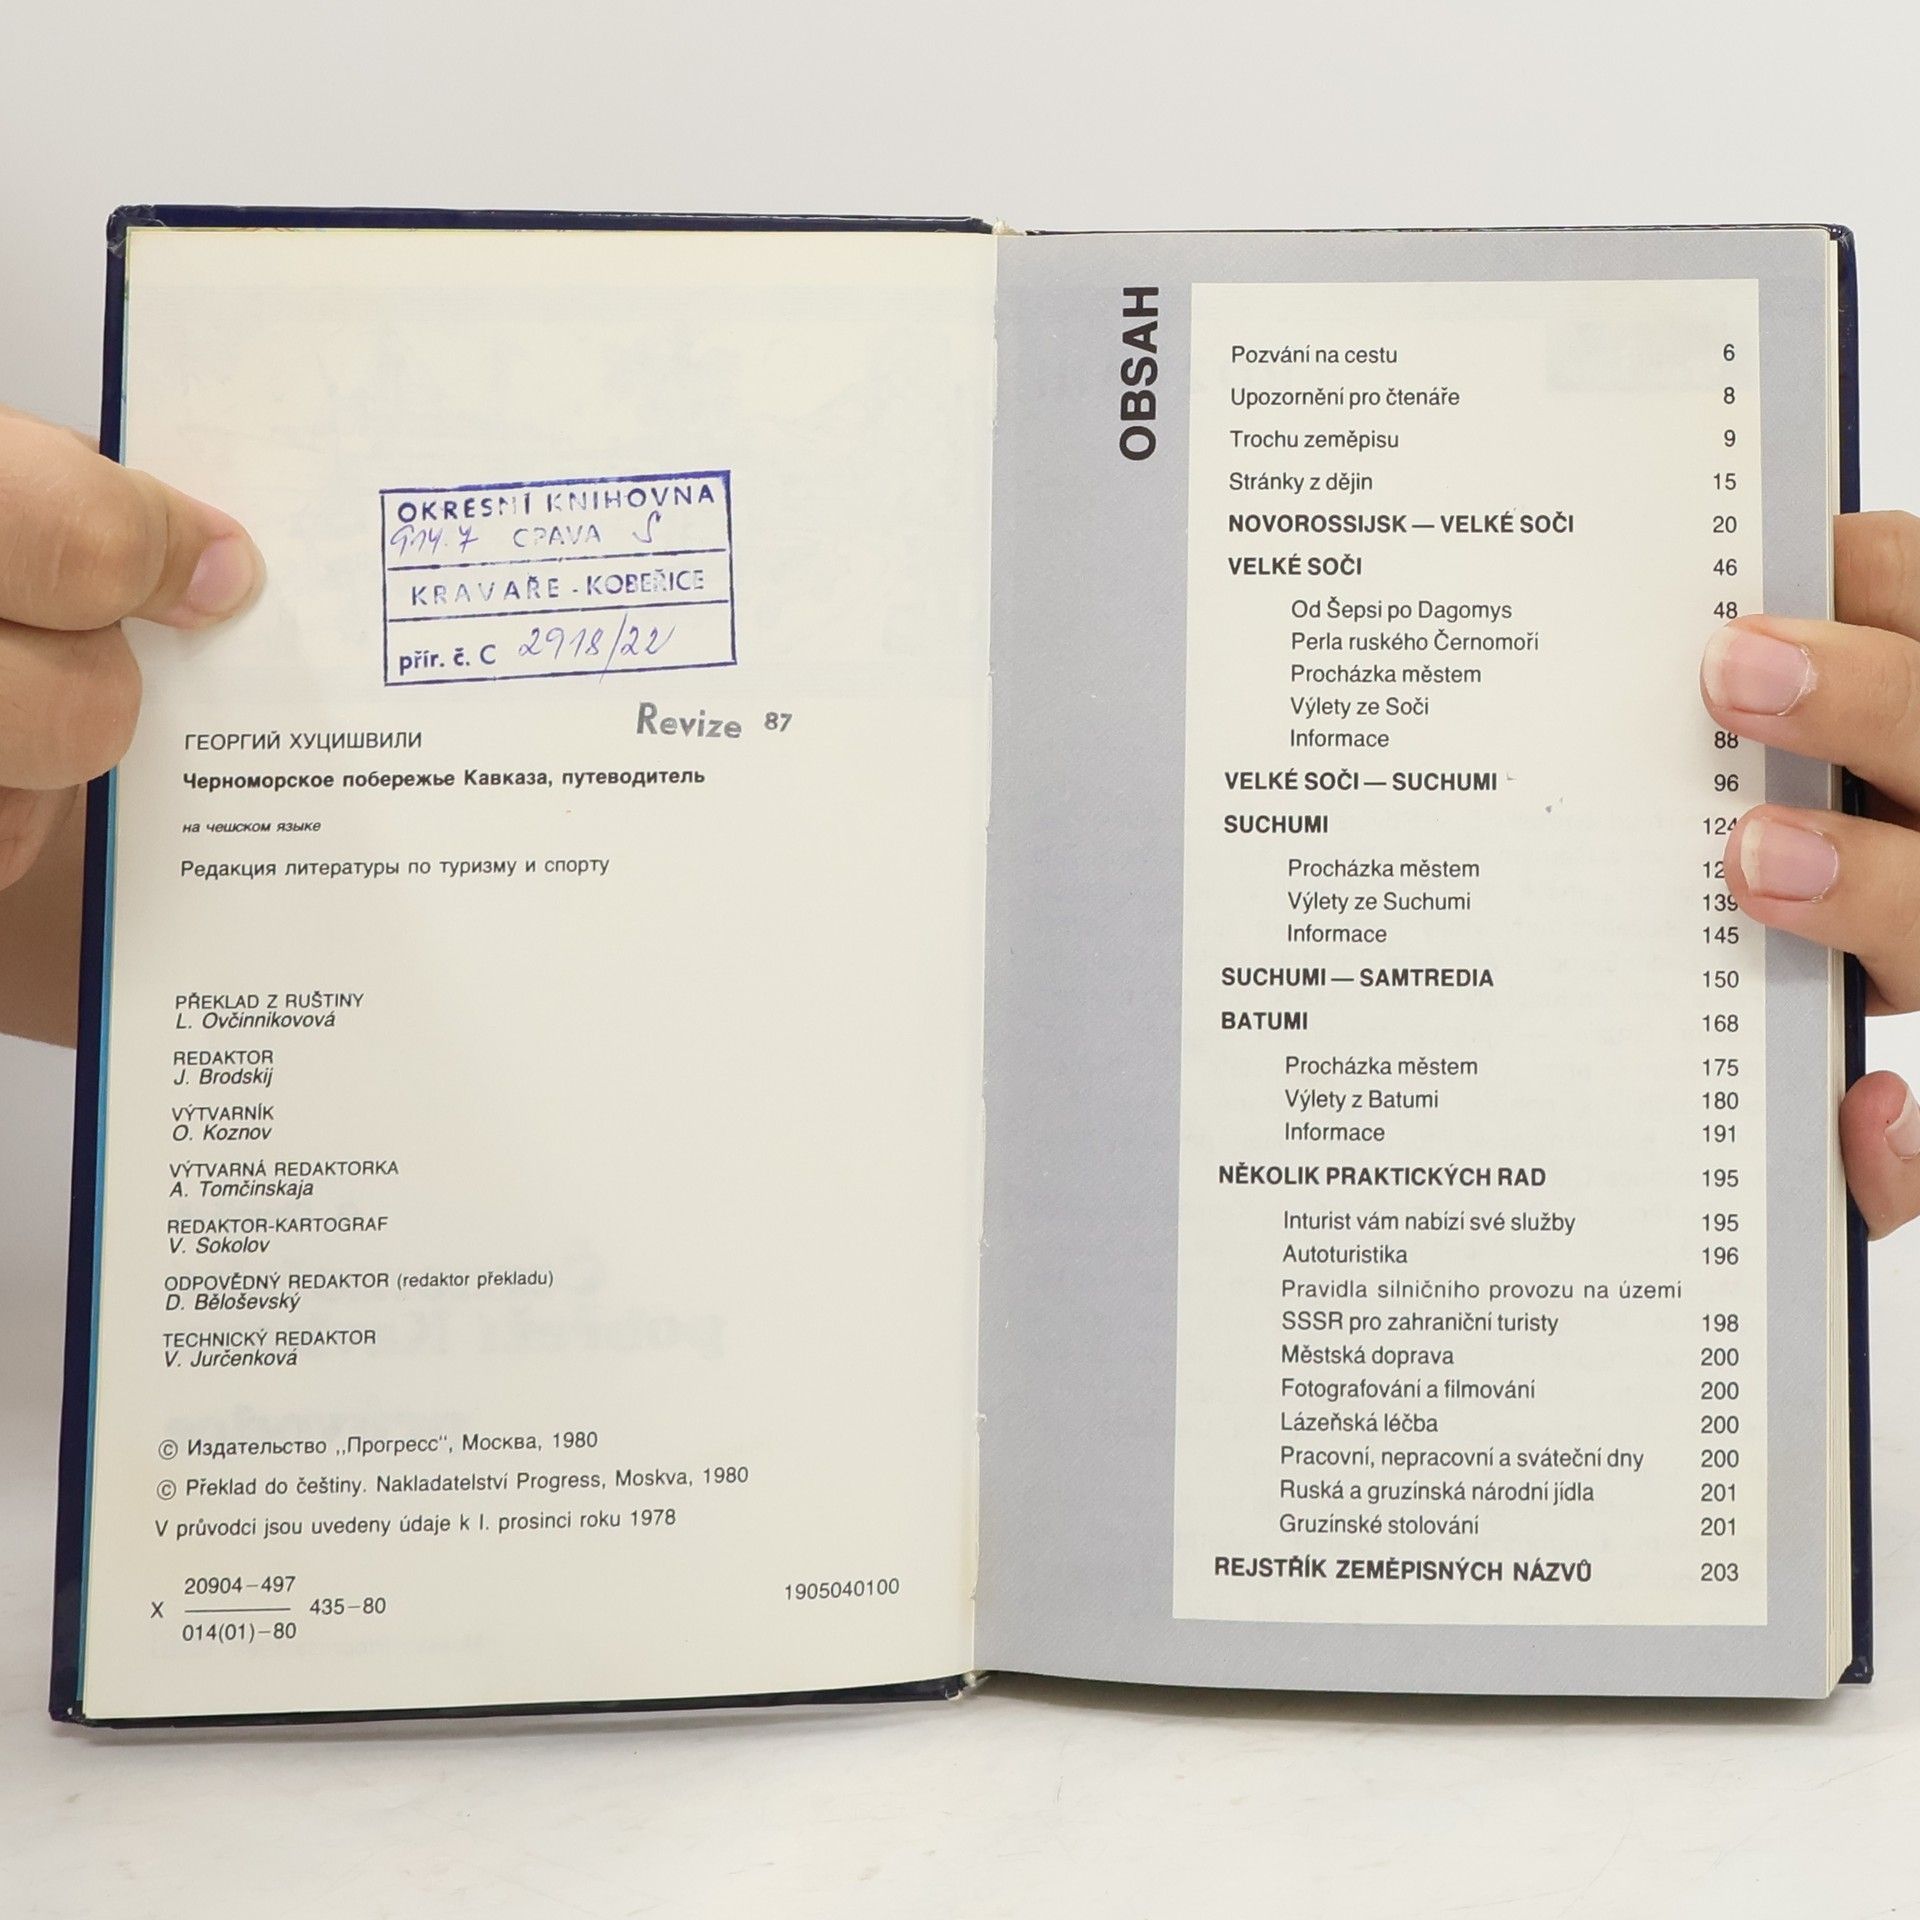 OKRESNÍ KNIHOVNA
914.7 OPAVA S
KRAVAŘE - KOBEŘICE
přír. č. C 2918/22
Revize 87
ГЕОРГИЙ ХУЦИШВИЛИ
Черноморское побережье Кавказа, путеводитель
на чешском языке
Редакция литературы по туризму и спорту
PŘEKLAD Z RUŠTINY
L. Ovčinnikovová
REDAKTOR
J. Brodskij
VÝTVARNÍK
O. Koznov
VÝTVARNÁ REDAKTORKA
A. Tomčinskaja
REDAKTOR-KARTOGRAF
V. Sokolov
ODPOVĚDNÝ REDAKTOR (redaktor překladu)
D. Běloševský
TECHNICKÝ REDAKTOR
V. Jurčenková
© Издательство ,,Прогресс“, Москва, 1980
© Překlad do češtiny. Nakladatelství Progress, Moskva, 1980
V průvodci jsou uvedeny údaje k I. prosinci roku 1978
20904–497
X 435–80
014(01)–80
1905040100
OBSAH
Pozvání na cestu 6
Upozornění pro čtenáře 8
Trochu zeměpisu 9
Stránky z dějin 15
NOVOROSSIJSK — VELKÉ SOČI 20
VELKÉ SOČI 46
Od Šepsi po Dagomys 48
Perla ruského Černomoří
Procházka městem
Výlety ze Soči
Informace 88
VELKÉ SOČI — SUCHUMI 96
SUCHUMI 124
Procházka městem
Výlety ze Suchumi 139
Informace 145
SUCHUMI — SAMTREDIA 150
BATUMI 168
Procházka městem 175
Výlety z Batumi 180
Informace 191
NĚKOLIK PRAKTICKÝCH RAD 195
Inturist vám nabízí své služby 195
Autoturistika 196
Pravidla silničního provozu na území
SSSR pro zahraniční turisty 198
Městská doprava 200
Fotografování a filmování 200
Lázeňská léčba 200
Pracovní, nepracovní a sváteční dny 200
Ruská a gruzínská národní jídla 201
Gruzínské stolování 201
REJSTŘÍK ZEMĚPISNÝCH NÁZVŮ 203